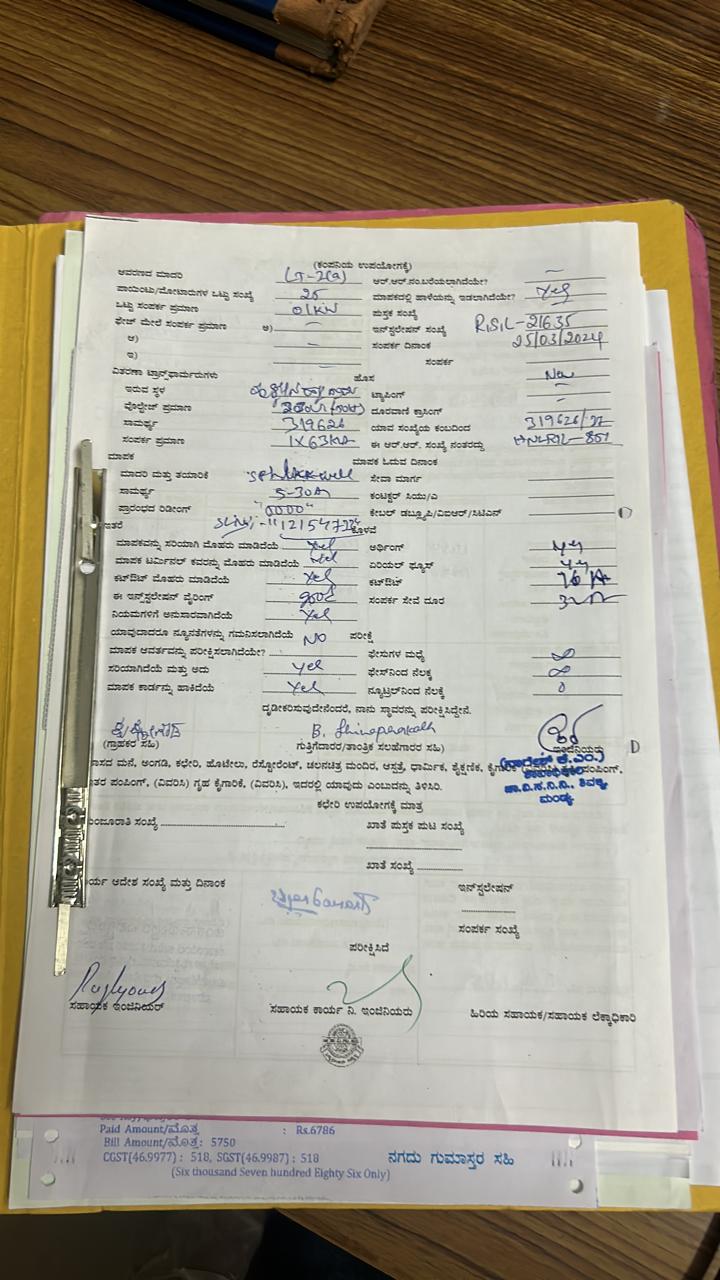 (ಕಂಪನಿಯ ಉಪಯೋಗಕ್ಕೆ)
ಆವರಣದ ಮಾದರಿ LT-2(a) ಆರ್.ಆರ್.ನಂ.ಬರೆಯಲಾಗಿದೆಯೇ? —
ಪಾಯಿಂಟು/ಮೋಟಾರುಗಳ ಒಟ್ಟು ಸಂಖ್ಯೆ 25 ಮಾಪಕದಲ್ಲಿ ಹಾಳೆಯನ್ನು ಇಡಲಾಗಿದೆಯೇ? Yes
ಒಟ್ಟು ಸಂಪರ್ಕ ಪ್ರಮಾಣ 01KW ಪುಸ್ತಕ ಸಂಖ್ಯೆ —
ಫೇಜ್ ಮೇಲೆ ಸಂಪರ್ಕ ಪ್ರಮಾಣ ಅ) — ಇನ್‌ಸ್ಟಲೇಷನ್ ಸಂಖ್ಯೆ RSIL-21635
ಆ) — ಸಂಪರ್ಕ ದಿನಾಂಕ 25/03/2024
ಇ) ಸಂಪರ್ಕ
ವಿತರಣಾ ಟ್ರಾನ್ಸ್‌ಫಾರ್ಮರುಗಳು ಹೊಸ New
ಇರುವ ಸ್ಥಳ ಟ್ಯಾಪಿಂಗ್ —
ವೋಲ್ಟೇಜ್ ಪ್ರಮಾಣ ದೂರವಾಣಿ ಕ್ರಾಸಿಂಗ್ —
ಸಾಮರ್ಥ್ಯ 319626 ಯಾವ ಸಂಖ್ಯೆಯ ಕಂಬದಿಂದ 319626/
ಸಂಪರ್ಕ ಪ್ರಮಾಣ 1X63KVA ಈ ಆರ್.ಆರ್. ಸಂಖ್ಯೆ ನಂತರದ್ದು
ಮಾಪಕ ಮಾಪಕ ಓದುವ ದಿನಾಂಕ
ಮಾದರಿ ಮತ್ತು ತಯಾರಿಕೆ ಸೇವಾ ಮಾರ್ಗ
ಸಾಮರ್ಥ್ಯ 5-30A ಕಂಟಕ್ಟರ್ ಸಿಯು/ಎ
ಪ್ರಾರಂಭದ ರಿಡೀಂಗ್ "0000" ಕೇಬಲ್ ಡಬ್ಲ್ಯೂಪಿ/ವಿಐಆರ್/ಸಿಟಿಎಸ್
ಇತರೆ ಕೊಳವೆ
ಮಾಪಕವನ್ನು ಸರಿಯಾಗಿ ಮೊಹರು ಮಾಡಿದೆಯೆ Yes ಅರ್ಥಿಂಗ್
ಮಾಪಕ ಟರ್ಮಿನಲ್ ಕವರನ್ನು ಮೊಹರು ಮಾಡಿದೆಯೆ Yes ಏರಿಯಲ್ ಫ್ಯೂಸ್
ಕಟ್‌ಔಟ್ ಮೊಹರು ಮಾಡಿದೆಯೆ Yes ಕಟ್‌ಔಟ್ 16 A
ಈ ಇನ್‌ಸ್ಟಲೇಷನ್ ವೈರಿಂಗ್ good ಸಂಪರ್ಕ ಸೇವೆ ದೂರ
ನಿಯಮಗಳಿಗೆ ಅನುಸಾರವಾಗಿದೆಯೆ Yes
ಯಾವುದಾದರೂ ನ್ಯೂನತೆಗಳನ್ನು ಗಮನಿಸಲಾಗಿದೆಯೆ NO ಪರೀಕ್ಷೆ
ಮಾಪಕ ಆವರ್ತವನ್ನು ಪರೀಕ್ಷಿಸಲಾಗಿದೆಯೇ? ಫೇಸುಗಳ ಮಧ್ಯೆ ∞
ಸರಿಯಾಗಿದೆಯೆ ಮತ್ತು ಅದು Yes ಫೇಸ್‌ನಿಂದ ನೆಲಕ್ಕೆ ∞
ಮಾಪಕ ಕಾರ್ಡನ್ನು ಹಾಕಿದೆಯೆ Yes ನ್ಯೂಟ್ರಲ್‌ನಿಂದ ನೆಲಕ್ಕೆ 0
ದೃಢೀಕರಿಸುವುದೇನೆಂದರೆ, ನಾನು ಸ್ಥಾವರನ್ನು ಪರೀಕ್ಷಿಸಿದ್ದೇನೆ.
B. Shivaprakash
(ಗ್ರಾಹಕರ ಸಹಿ) ಗುತ್ತಿಗೆದಾರರ/ತಾಂತ್ರಿಕ ಸಲಹೆಗಾರರ ಸಹಿ) ಇಂಜಿನಿಯರು
ವಾಸದ ಮನೆ, ಅಂಗಡಿ, ಕಛೇರಿ, ಹೊಟೇಲು, ರೆಸ್ಟೋರೆಂಟ್, ಚಲನಚಿತ್ರ ಮಂದಿರ, ಆಸ್ಪತ್ರೆ, ಧಾರ್ಮಿಕ, ಶೈಕ್ಷಣಿಕ, ಕೈಗಾರಿಕೆ (ವಿವರಿಸಿ) ಪಂಪಿಂಗ್,
ಇತರ ಪಂಪಿಂಗ್, (ವಿವರಿಸಿ) ಗೃಹ ಕೈಗಾರಿಕೆ, (ವಿವರಿಸಿ), ಇದರಲ್ಲಿ ಯಾವುದು ಎಂಬುದನ್ನು ತಿಳಿಸಿರಿ.
ಮಂಡ್ಯ
ಕಛೇರಿ ಉಪಯೋಗಕ್ಕೆ ಮಾತ್ರ
ಮಂಜೂರಾತಿ ಸಂಖ್ಯೆ ಖಾತೆ ಪುಸ್ತಕ ಪುಟ ಸಂಖ್ಯೆ
ಖಾತೆ ಸಂಖ್ಯೆ
ಕಾರ್ಯ ಆದೇಶ ಸಂಖ್ಯೆ ಮತ್ತು ದಿನಾಂಕ ಇನ್‌ಸ್ಟಲೇಷನ್
ಸಂಪರ್ಕ ಸಂಖ್ಯೆ
ಪರೀಕ್ಷಿಸಿದೆ
ಸಹಾಯಕ ಇಂಜಿನಿಯರ್ ಸಹಾಯಕ ಕಾರ್ಯ ನಿ. ಇಂಜಿನಿಯರು ಹಿರಿಯ ಸಹಾಯಕ/ಸಹಾಯಕ ಲೆಕ್ಕಾಧಿಕಾರಿ
Paid Amount/ಮೊತ್ತ : Rs.6786
Bill Amount/ಮೊತ್ತ: 5750
CGST(46.9977) : 518, SGST(46.9987) : 518 ನಗದು ಗುಮಾಸ್ತರ ಸಹಿ
(Six thousand Seven hundred Eighty Six Only)